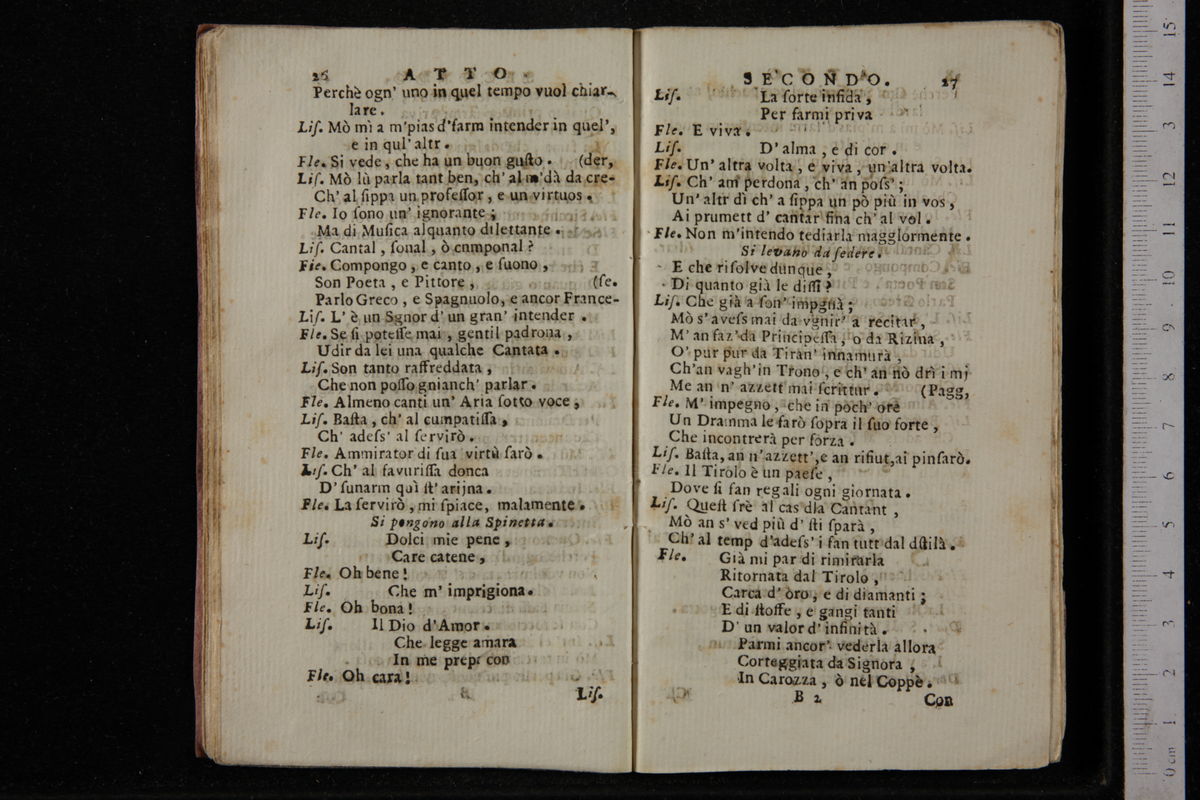 26 ATTO.
Perchè ogn' uno in quel tempo vuol chiar-
lare.
Liſ. Mò mì a m'pias d'farm intender in quel',
e in qul' altr.
Fle. Si vede, che ha un buon guſto. (der,
Liſ. Mò lù parla tant ben, ch' al m'dà da cre-
Ch' al ſippa un profeſſor, e un virtuos.
Fle. Io ſono un' ignorante;
Ma di Muſica alquanto dilettante.
Liſ. Cantal, ſonal, ò cnmponal?
Fle. Compongo, e canto, e ſuono,
Son Poeta, e Pittore, (ſe.
Parlo Greco, e Spagnuolo, e ancor France-
Liſ. L' è un Sgnor d' un gran' intender.
Fle. Se ſi poteſſe mai, gentil padrona,
Udir da lei una qualche Cantata.
Liſ. Son tanto raffreddata,
Che non poſſo gnianch' parlar.
Fle. Almeno canti un' Aria ſotto voce,
Liſ. Baſta, ch' al cumpatiſſa,
Ch' adeſs' al ſervirò.
Fle. Ammirator di ſua virtù ſarò.
Liſ. Ch' al favuriſſa donca
D' ſunarm quì ſt' arijna.
Fle. La ſervirò, mi ſpiace, malamente.
Si pongono alla Spinetta.
Liſ. Dolci mie pene,
Care catene,
Fle. Oh bene!
Liſ. Che m' imprigiona.
Fle. Oh bona!
Liſ. Il Dio d'Amor.
Che legge amara
In me prepr con
Fle. Oh cara!
Liſ.
SECONDO. 27
Liſ. La ſorte infida,
Per farmi priva
Fle. E viva.
Liſ. D' alma, e di cor.
Fle. Un' altra volta, e viva, un'altra volta.
Liſ. Ch' am perdona, ch' an poſs';
Un' altr dì ch' a ſippa un pò più in vos,
Ai prumett d' cantar fina ch' al vol.
Fle. Non m'intendo tediarla maggIormente.
Si levano da ſedere.
E che riſolve dunque,
Di quanto già le diſſi?
Liſ. Che già a ſon' impgnà;
Mò s'aveſs mai da vgnir' a recitar,
M' an faz' da Principeſſa, o da Rizina,
O' pur pur da Tiran' innamurà,
Ch'an vagh'in Trono, e ch' an nò drì i mj
Me an n' azzett mai ſcrittur. (Pagg,
Fle. M' impegno, che in poch' ore
Un Dramma le farò ſopra il ſuo forte,
Che incontrerà per forza.
Liſ. Baſta, an n'azzett', e an rifiut, ai pinſarò.
Fle. Il Tirolo è un paeſe,
Dove ſi fan regali ogni giornata.
Liſ. Queſt ſrè al cas dla Cantant,
Mò an s' ved più d' ſti ſparà,
Ch' al temp d'adeſs' i fan tutt dal dſtilà.
Fle. Già mi par di rimirarla
Ritornata dal Tirolo,
Carca d' oro, e di diamanti;
E di ſtoffe, e gangi tanti
D' un valor d' infinità.
Parmi ancor' vederla allora
Corteggiata da Signora,
In Carozza, ò nel Coppè.
B 2 Con